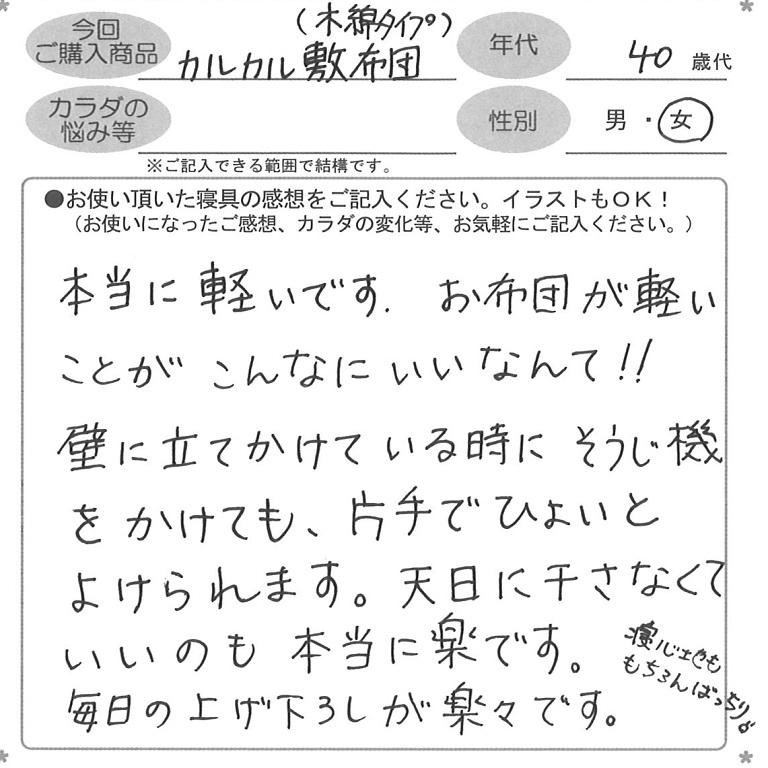 今回
ご購入商品
(木綿タイプ)
カルカル敷布団
年代
40 歳代
カラダの
悩み等
性別
男・女
※ご記入できる範囲で結構です。
●お使い頂いた寝具の感想をご記入ください。イラストもOK!
(お使いになったご感想、カラダの変化等、お気軽にご記入ください。)
本当に軽いです. お布団が軽い
ことが こんなに いいなんて!!
壁に立てかけている時に そうじ機
をかけても、片手でひょいと
よけられます。天日に干さなくて
いいのも 本当に楽です。
毎日の上げ下ろしが楽々です。
寝心地も
もちろんばっちり♪